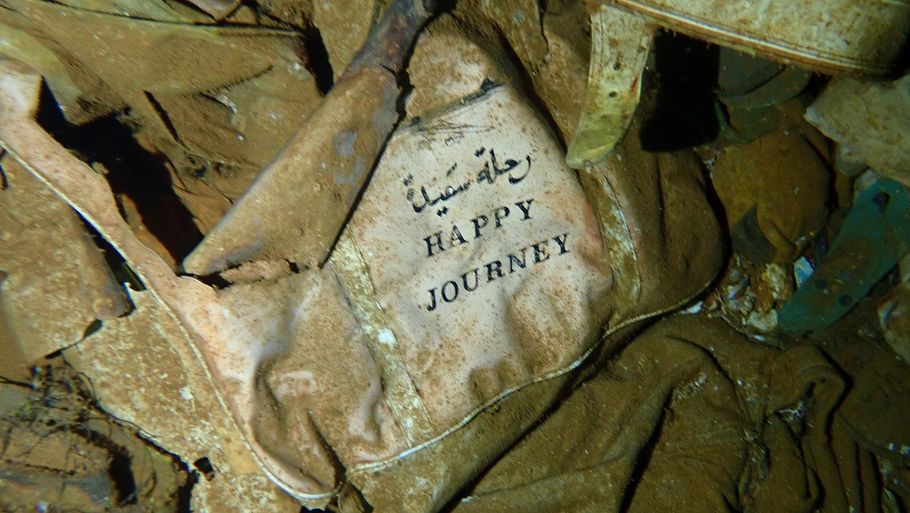 رحلة سعيدة
HAPPY
JOURNEY